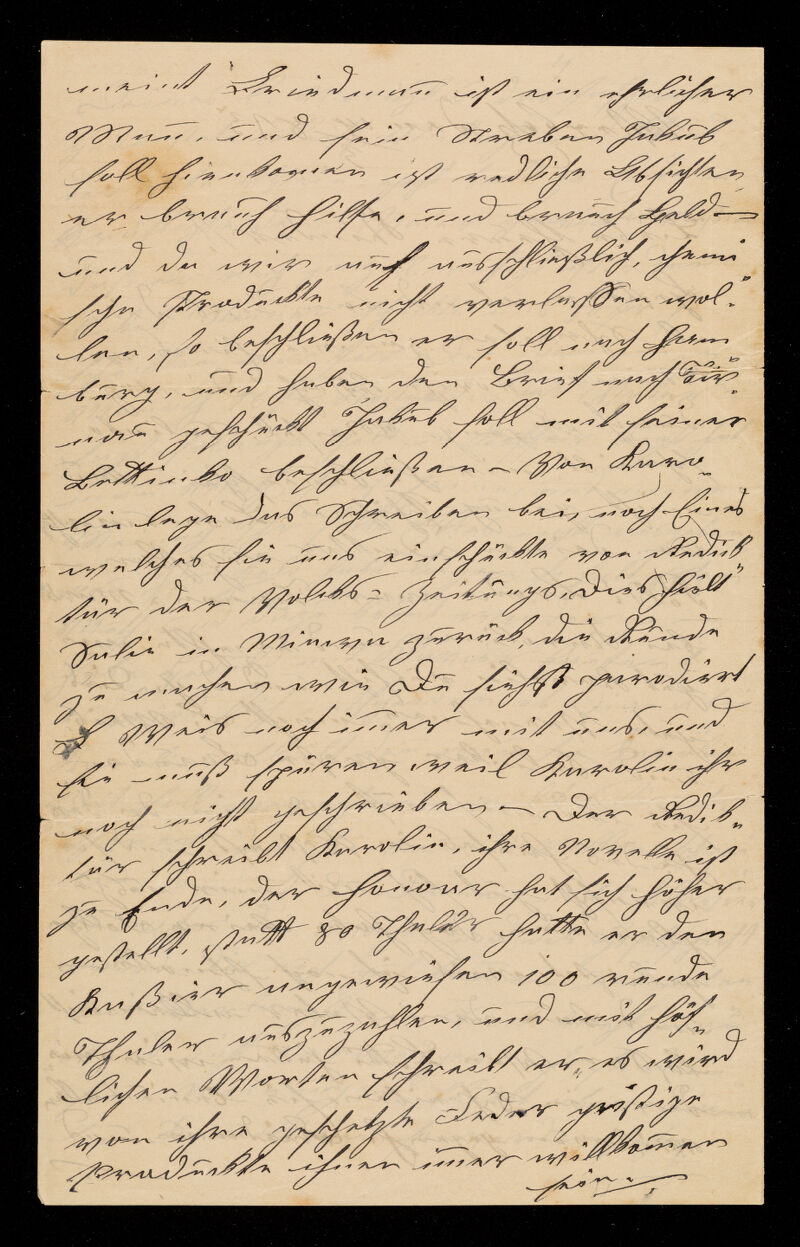 meint Friedmann ist ein ehrlicher
Mann, und sein Streben Jakob
soll hienkomen ist redliche Absichten,
er brauch Hilfe, und brauch Geld —
und da wir auf ausschließlich, chemi
sche Produckte nicht verlassen wol-
len, so beschließen er soll nach Ham
burg, und haben den Brief nach Tir-
nau geschückt Jakob soll mit seiner
Bettinko beschließen — Von Karo-
lin lege das Schreiben bei, noch Eines
welches sie uns einschückte von Redück
tür der Volcks-Zeitungs, Dies hielt
Salie in Mierva zurück, die Runde
zu machen wie Du siehst parodirt
S Weis noch imer mit uns, und
sie muß spüren weil Karolin ihr
noch nicht geschrieben — Der Redik-
tür schreibt Karolin, ihre Novelle ist
zu Ende, der Honorar hat sich höher
gestellt, statt 80 Thaler hatte er den
Kaßier angewiesen 100 runde
Thaler auszuzahlen, und mit höf-
lichen Worten schreibt er, es wird
von ihre geschetzte Feder geistige
Produckte ihnen imer willkomen
sein.